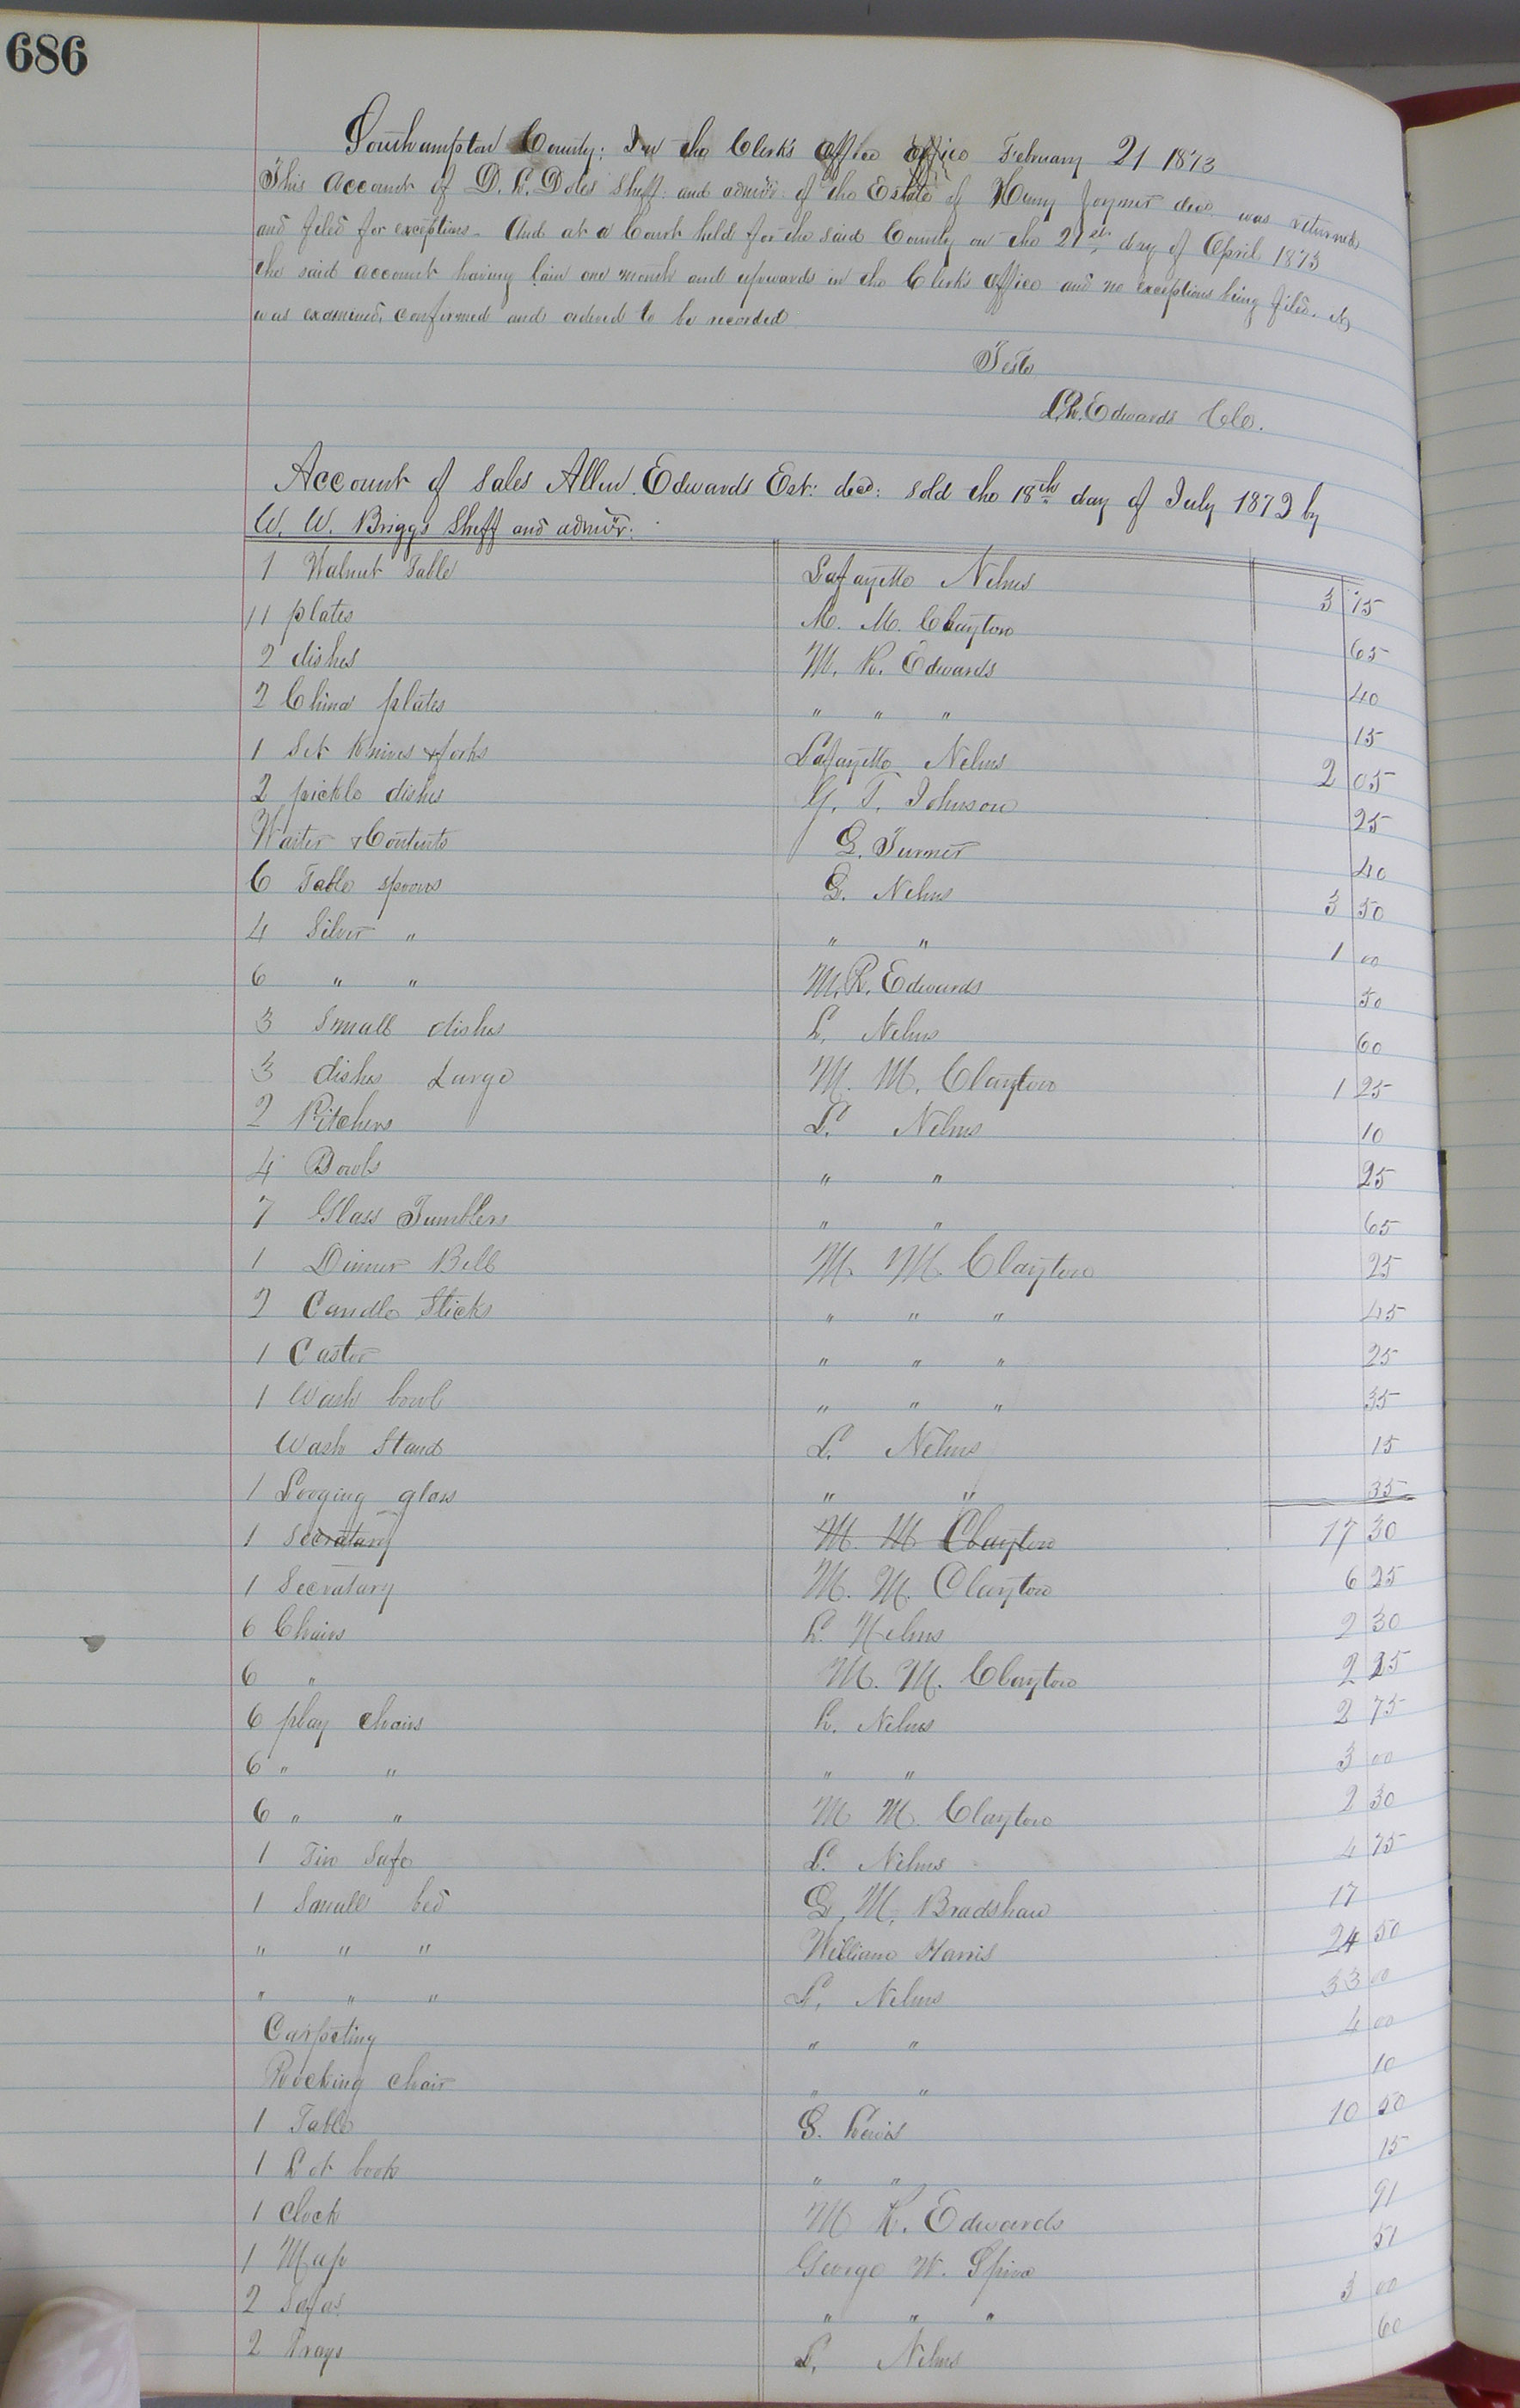 686
Southampton County; In the Clerk's office office February 21 1873
This Account of D. L. Doles Sheff. and admor. of the Estate of Henry Joyner decd. was returned
and filed for exceptions. And at a Court held for the said County on the 21st day of April 1873
the said account having lain one month and upwards in the Clerk's office and no exceptions being filed. it
was examined, confirmed and ordered to be recorded
Teste
L. R. Edwards Clk.
Account of Sales Allen Edwards Est: decd: sold the 18th day of July 1872 by
W. W. Briggs Sheff and admor:
1 Walnut Table Lafayette Nelms 3 75
11 plates M. M. Clayton 65
2 dishes M. R. Edwards 40
2 China plates " " " 15
1 Set Knives & forks Lafayette Nelms 2 05
2 pickle dishes G. T. Johnson 25
Waiter & Contents G. Turner 40
6 Table spoons L. Nelms 3 50
4 Silver " " " 1 00
6 " " M. R. Edwards 50
3 Small dishes L. Nelms 60
3 dishes Large M. M. Clayton 1 25
2 Pitchers L. Nelms 10
4 Bowls " " 25
7 Glass Tumblers " " 65
1 Dinner Bell M. M. Clayton 25
2 Candle Sticks " " " 45
1 Castor " " " 25
1 Wash bowl " " " 35
Wash Stand L. Nelms 15
1 Looging glass " " 35
1 Secratary M. M. Clayton 17 30
1 Secratary M. M. Clayton 6 25
6 Chairs L. Nelms 2 30
6 " M. M. Clayton 2 25
6 play chairs L. Nelms 2 75
6 " " " " 3 00
6 " " M M. Clayton 2 30
1 Tin Safe L. Nelms 4 75
1 Small bed G. M. Bradshaw 17
" " " William Harris 24 50
" " " L. Nelms 33 00
Carpeting " " 4 00
Rocking chair " " 10
1 Table S. Lewis 10 50
1 Lot book " " 15
1 Clock M R. Edwards 91
1 Map George W. Spivo 51
2 Sofas " " " 3 00
2 Trays L. Nelms 60